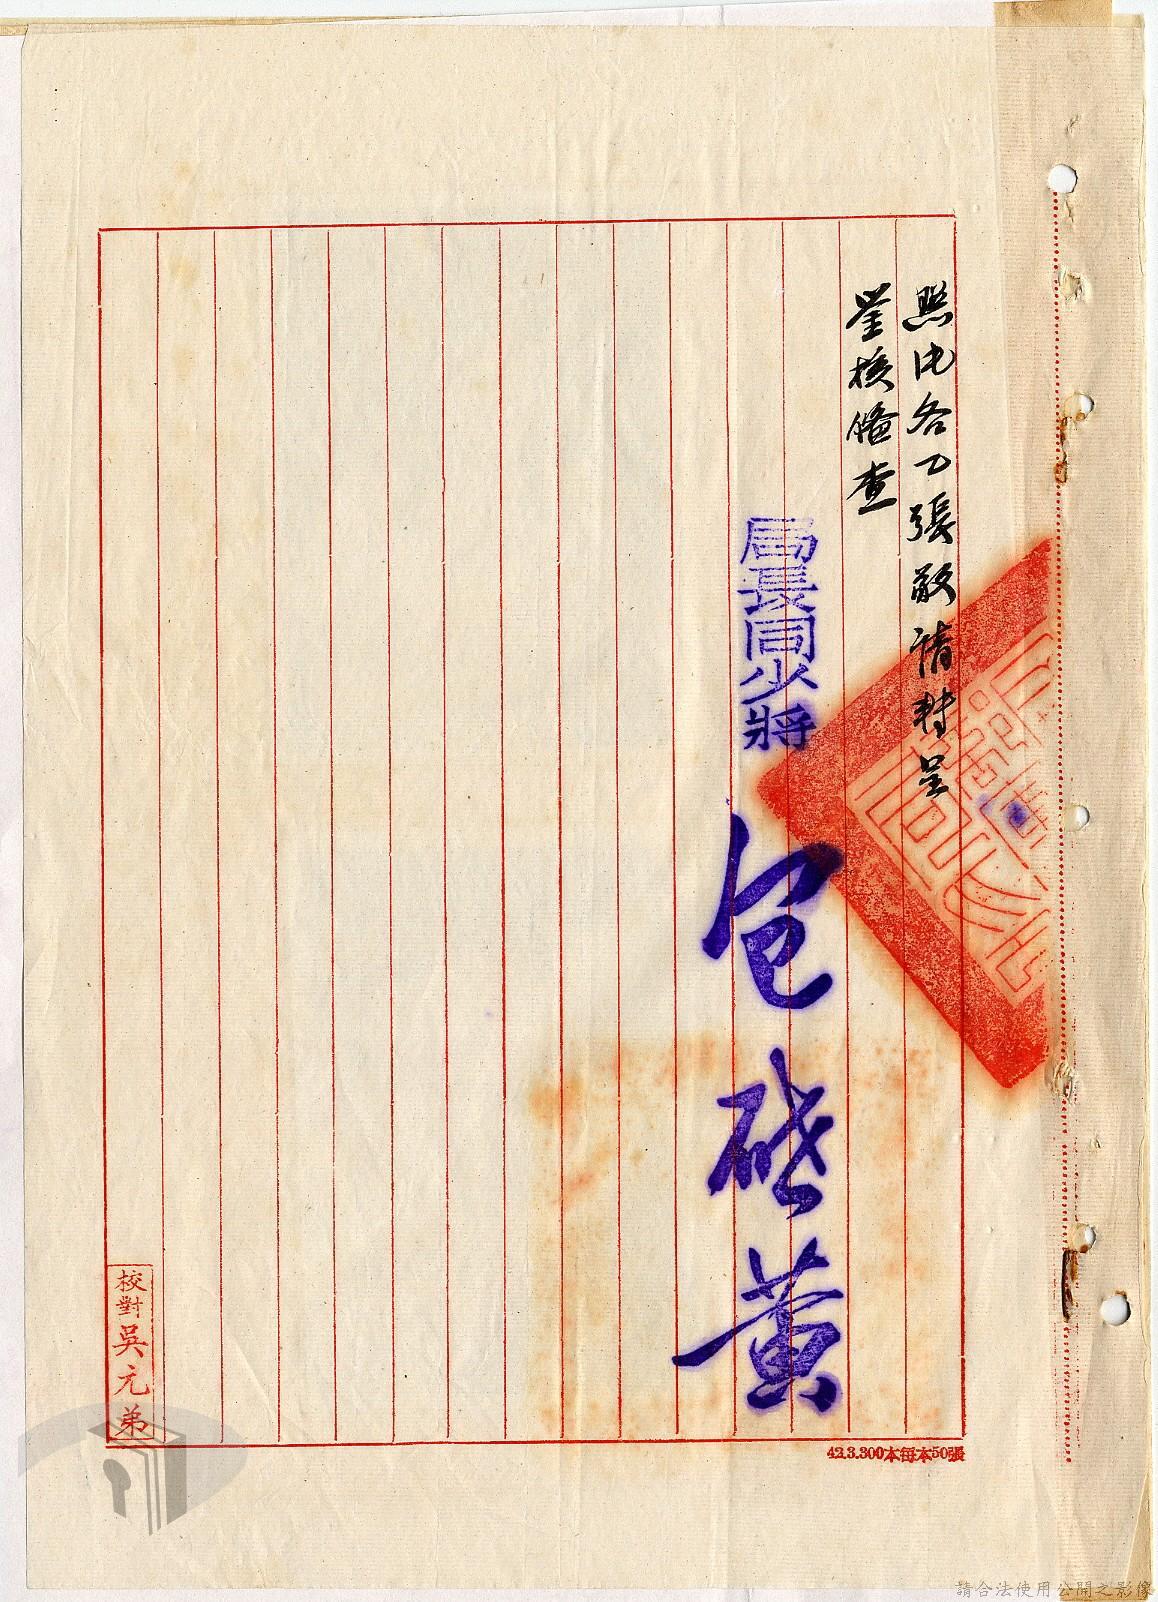 照片各乙張敬請轉呈
鑒核備查
局長同少將
包啟黃
校對吳元弟
42.3.300本每本50張
請合法使用公開之影像